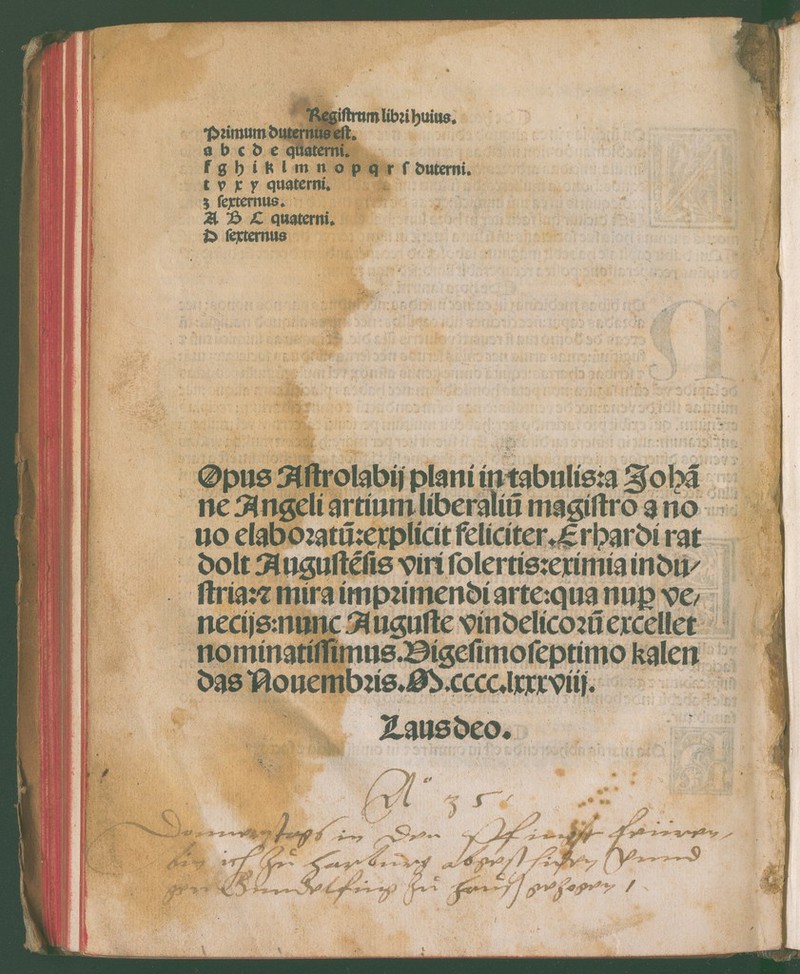 Regiſtrum libri huius.
Primum duternus eſt.
a b c d e quaterni.
f g h i k l m n o p q r ſ duterni.
t v x y quaterni.
z ſexternus.
A B C quaterni.
D ſexternus
Opus Aſtrolabij plani in tabulis:a Johã
ne Angeli artium liberaliũ magiſtro a no
uo elaboratũ:explicit feliciter.Erhardi rat
dolt Auguſtẽſis viri ſolertis:eximia indu⸗
ſtria:⁊ mira imprimendi arte:qua nuꝑ ve⸗
necijs:nunc Auguſte vindelicorũ excellet
nominatiſſimus.Vigeſimoſeptimo kalen
das Nouembris.M.cccc.lxxxviij.
Laus deo.
Aº 35
Donnerstags in den Pfingst feiiren
bin ich zu Harburg abgeschiden Vnnd
gen Gundelfing zu Hauß gezogen